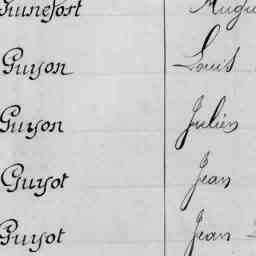 Guinefort
Guyon Louis
Guyon Julien
Guyot Jean
Guyot Jean